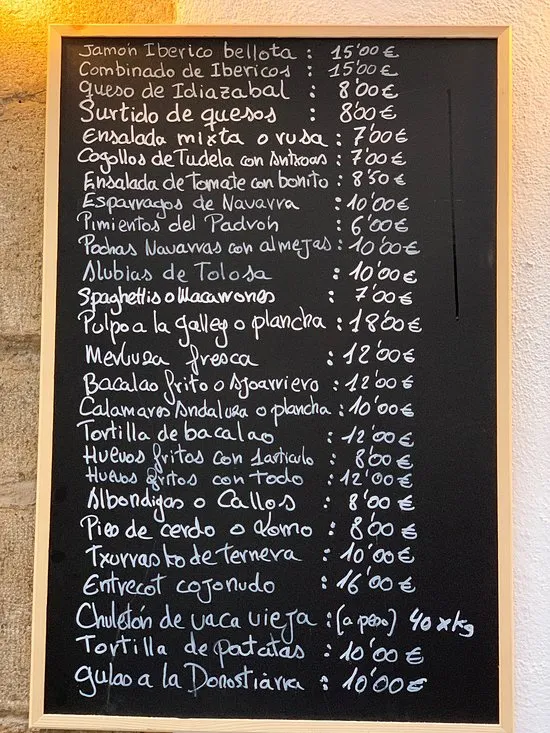 Jamón Iberico bellota : 15'00 €
Combinado de Ibericos : 15'00 €
Queso de Idiazabal : 8'00 €
Surtido de quesos : 8'00 €
Ensalada mixta o rusa : 7'00 €
Cogollos de Tudela con Antxoas : 7'00 €
Ensalada de tomate con bonito : 8'50 €
Esparragos de Navarra : 10'00 €
Pimientos del Padrón : 6'00 €
Pochas Navarras con almejas : 10'00 €
Alubias de Tolosa : 10'00 €
Spaghettis o Macarrones : 7'00 €
Pulpo a la galleg o plancha : 18'00 €
Merluza fresca : 12'00 €
Bacalao frito o Ajoarriero : 12'00 €
Calamares Andaluza o plancha : 10'00 €
Tortilla de bacalao : 12'00 €
Huevos fritos con 1 articulo : 8'00 €
Huevos fritos con todo : 12'00 €
Albondigas o Callos : 8'00 €
Pies de cerdo o Lomo : 8'00 €
Txurrasko de ternera : 10'00 €
Entrecot cojonudo : 16'00 €
Chuletón de vaca vieja : (a peso) 40 x kg
Tortilla de patatas : 10'00 €
Gulas a la Donostiarra : 10'00 €